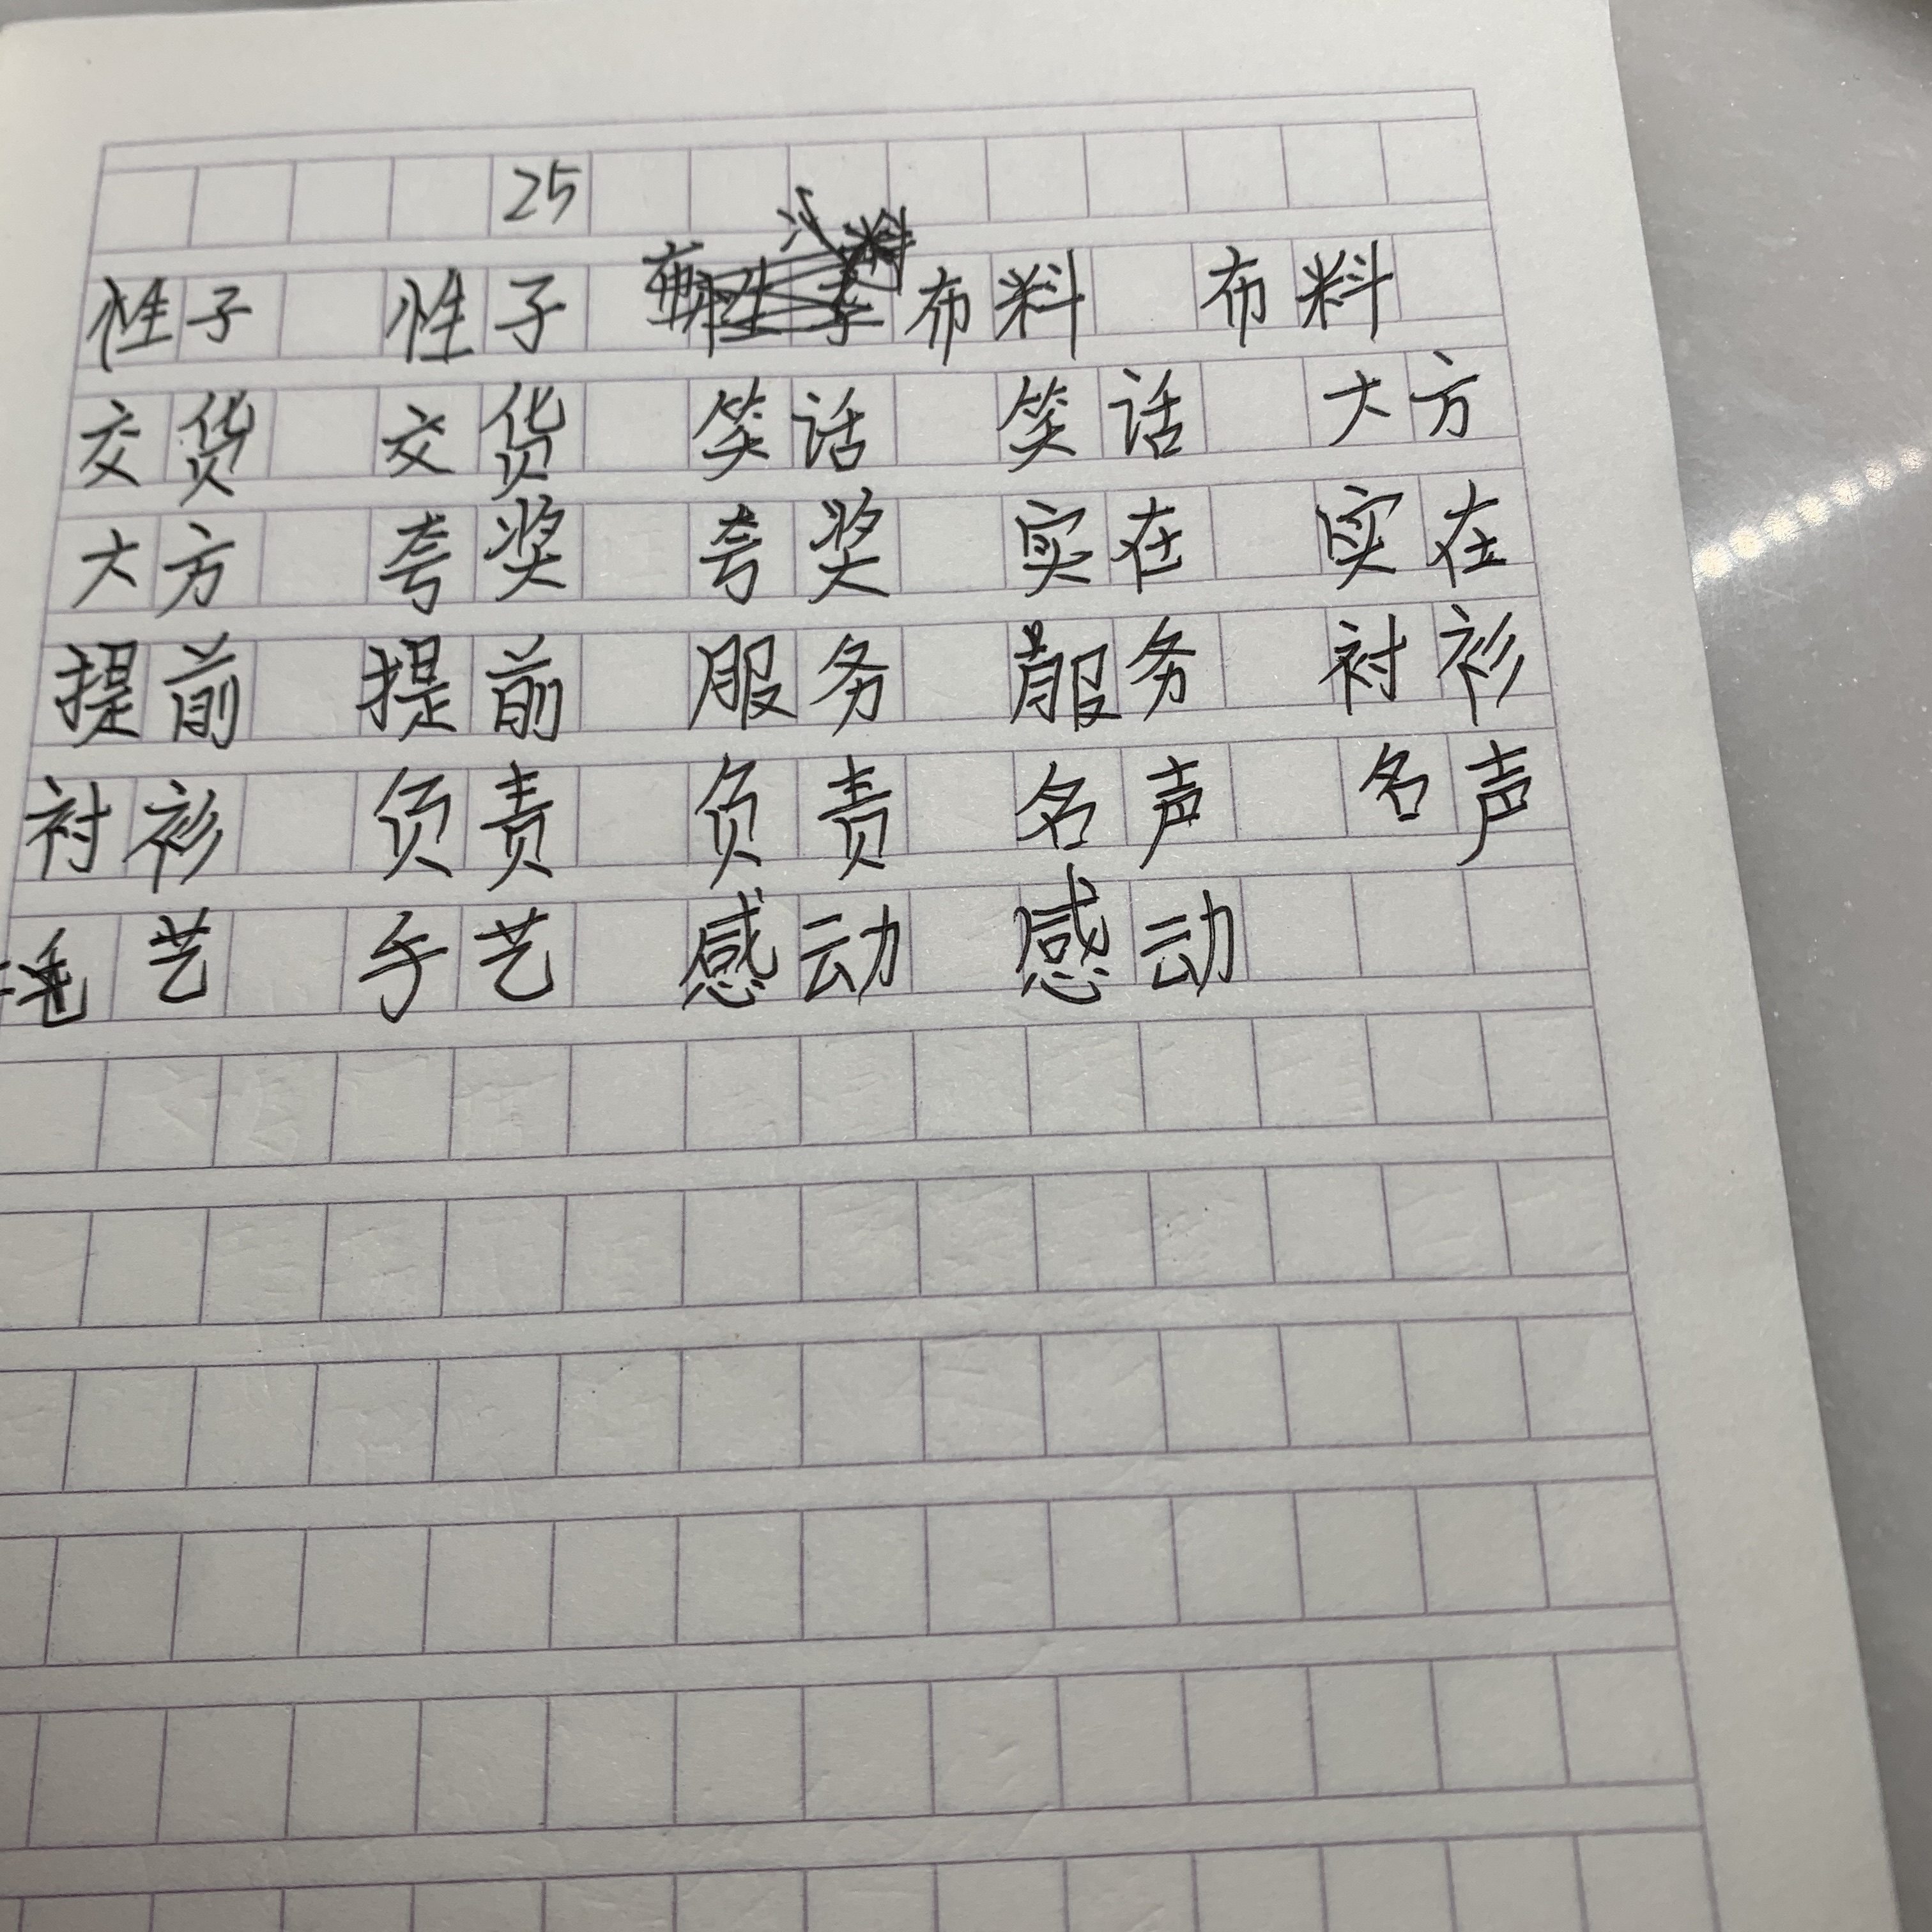 25
性子 性子 布料 布料
交货 交货 笑话 笑话 大方
大方 夸奖 夸奖 实在 实在
提前 提前 服务 服务 衬衫
衬衫 负责 负责 名声 名声
艺 手艺 感动 感动